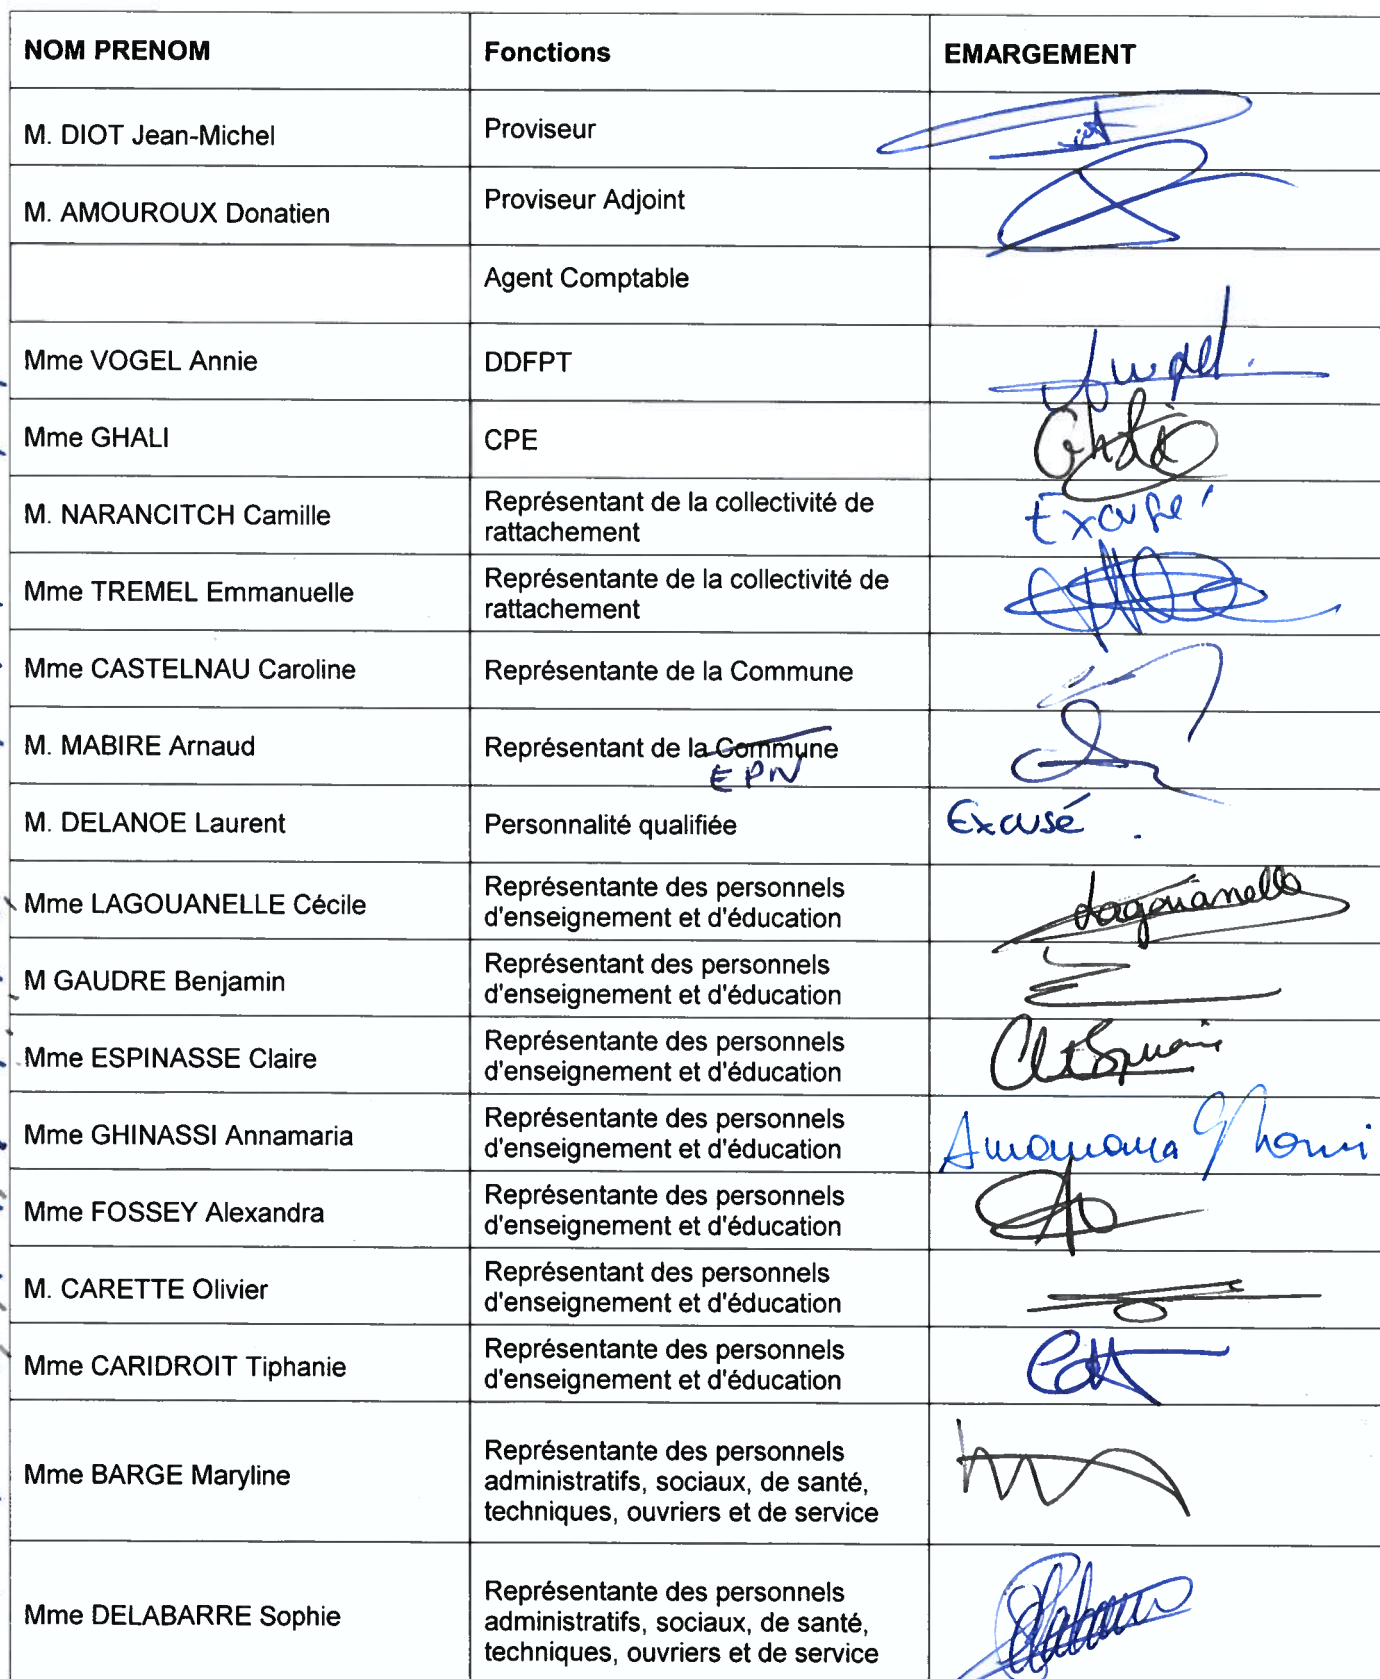 NOM PRENOM Fonctions EMARGEMENT
M. DIOT Jean-Michel Proviseur
M. AMOUROUX Donatien Proviseur Adjoint
Agent Comptable
Mme VOGEL Annie DDFPT
Mme GHALI CPE
M. NARANCITCH Camille Représentant de la collectivité de
rattachement Excusé
Mme TREMEL Emmanuelle Représentante de la collectivité de
rattachement
Mme CASTELNAU Caroline Représentante de la Commune
M. MABIRE Arnaud Représentant de la Commune
EPN
M. DELANOE Laurent Personnalité qualifiée Excusé.
Mme LAGOUANELLE Cécile Représentante des personnels
d'enseignement et d'éducation Lagouanelle
M GAUDRE Benjamin Représentant des personnels
d'enseignement et d'éducation
Mme ESPINASSE Claire Représentante des personnels
d'enseignement et d'éducation
Mme GHINASSI Annamaria Représentante des personnels
d'enseignement et d'éducation
Mme FOSSEY Alexandra Représentante des personnels
d'enseignement et d'éducation
M. CARETTE Olivier Représentant des personnels
d'enseignement et d'éducation
Mme CARIDROIT Tiphanie Représentante des personnels
d'enseignement et d'éducation
Mme BARGE Maryline Représentante des personnels
administratifs, sociaux, de santé,
techniques, ouvriers et de service
Mme DELABARRE Sophie Représentante des personnels
administratifs, sociaux, de santé,
techniques, ouvriers et de service